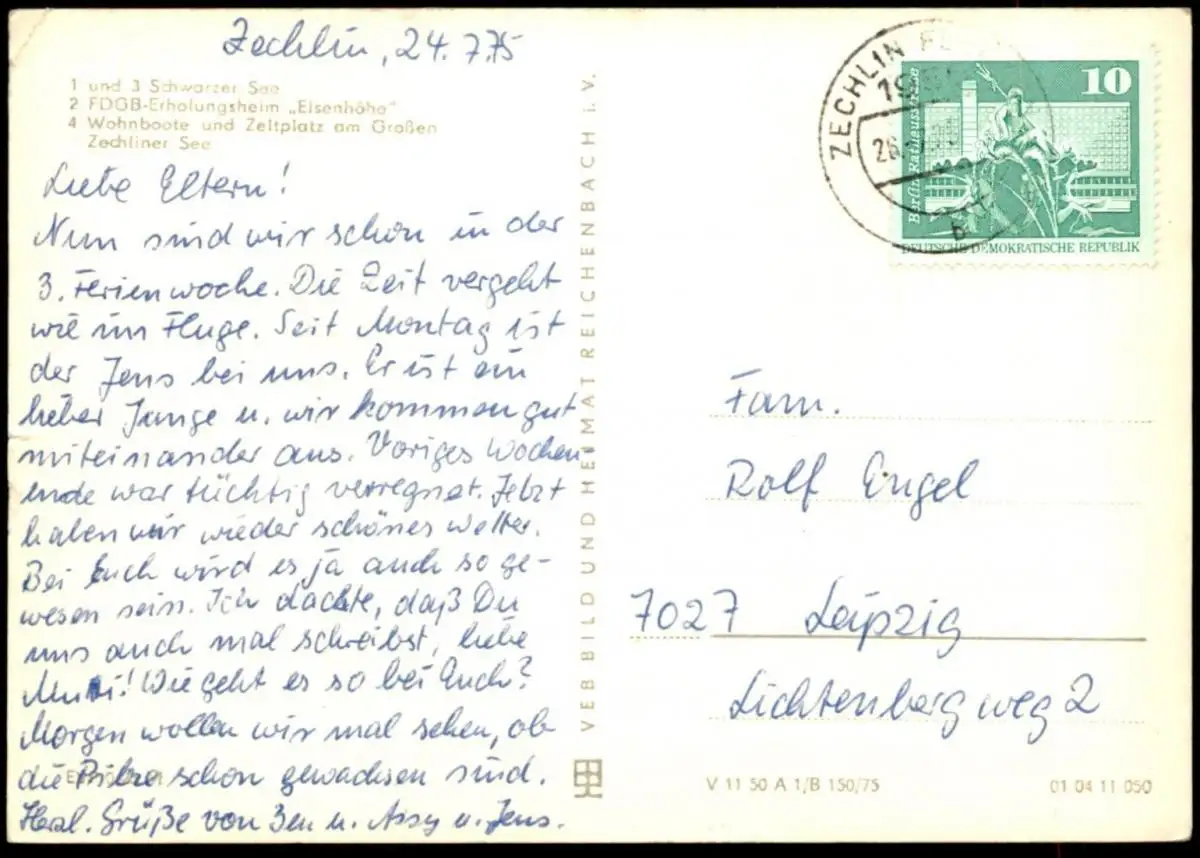 Zechlin, 24.7.75
1 und 3 Schwarzer See
2 FDGB-Erholungsheim „Elsenhöhe"
4 Wohnboote und Zeltplatz am Großen
Zechliner See
Liebe Eltern!
Nun sind wir schon in der
3. Ferienwoche. Die Zeit vergeht
wie im Fluge. Seit Montag ist
der Jens bei uns. Er ist ein
lieber Junge u. wir kommen gut
miteinander aus. Voriges Wochen-
ende war tüchtig verregnet. Jetzt
haben wir wieder schönes Wetter.
Bei Euch wird es ja auch so ge-
wesen sein. Ich dachte, daß Du
uns auch mal schreibst, liebe
Mutti! Wie geht es so bei Euch?
Morgen wollen wir mal sehen, ob
die Pilze schon gewachsen sind.
Herzl. Grüße von u. u. Jens.
VEB BILD UND HEIMAT REICHENBACH I. V.
ZECHLIN
10
Berlin
DEUTSCHE DEMOKRATISCHE REPUBLIK
Fam.
Rolf Engel
7027 Leipzig
Lichtenbergweg 2
V 11 50 A 1/B 150/75
01 04 11 050